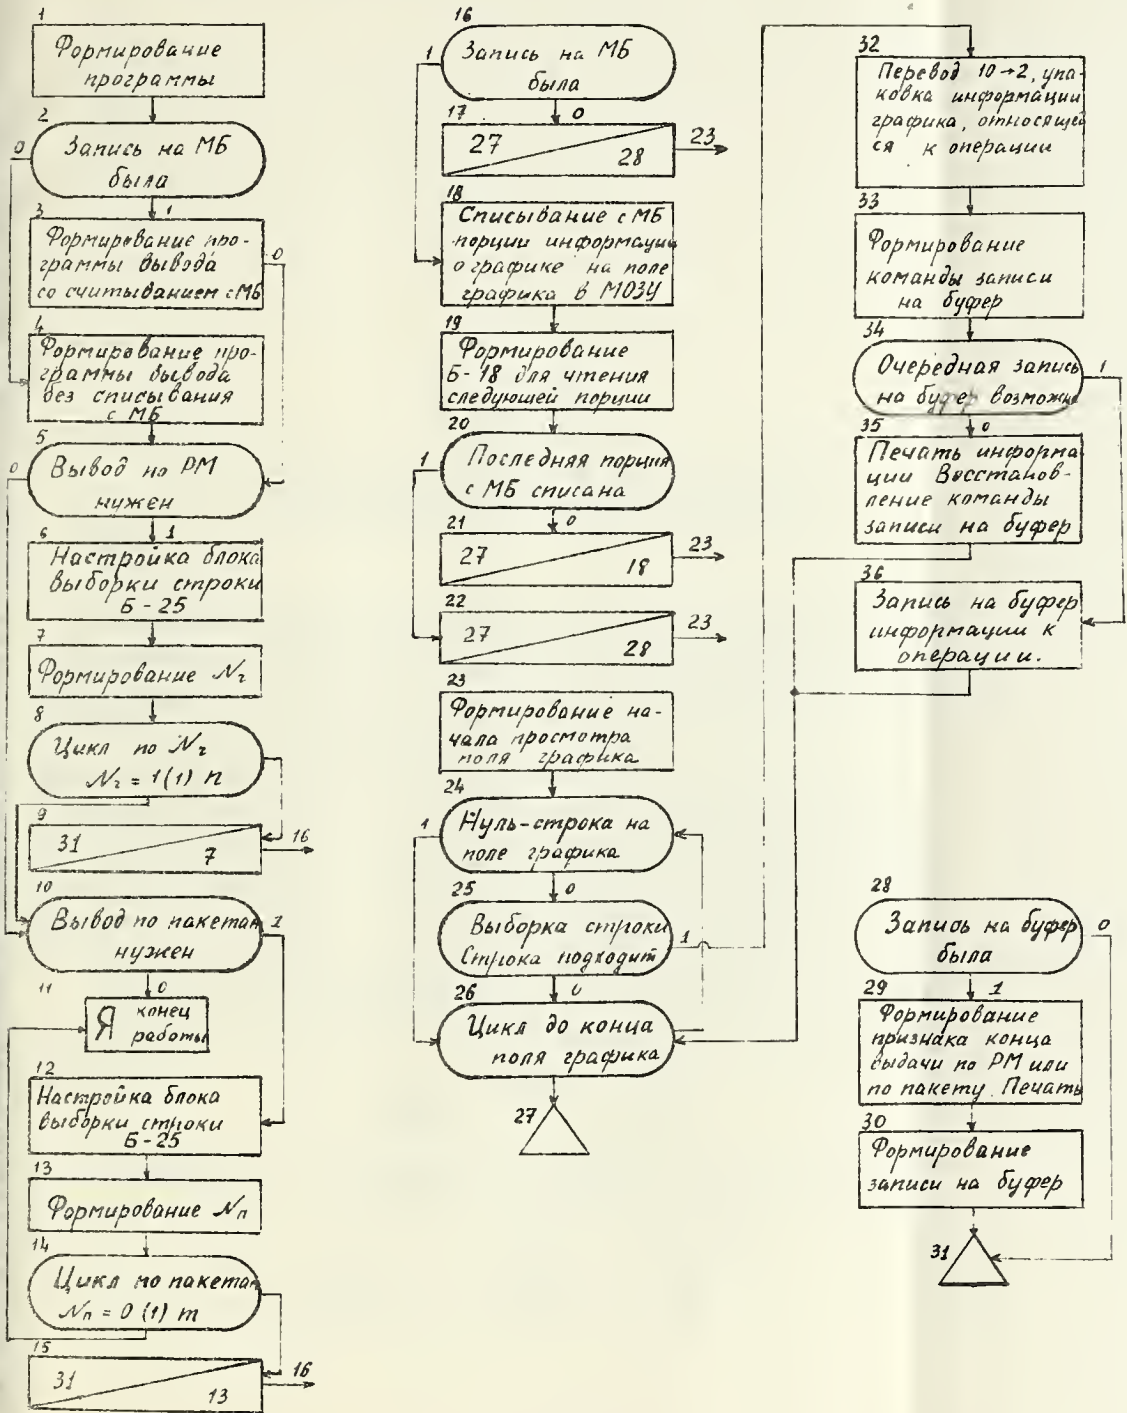 1
Формирование
программы
2
0
Запись на МБ
была
1
3
Формирование про-
граммы вывода
со считыванием с МБ
0
4
Формирование про-
граммы вывода
без списывания
с МБ
5
0
Вывод на РМ
нужен
1
6
Настройка блока
выборки строки
Б-25
7
Формирование Nг
8
Цикл по Nг
Nг = 1(1) n
9
31
7
16
10
Вывод по пакетам
нужен
1
0
11
Я конец
работы
12
Настройка блока
выборки строки
Б-25
13
Формирование Nп
14
Цикл по пакетам
Nп = 0 (1) m
15
31
13
16
16
1
Запись на МБ
была
0
17
27
28
23
18
Списывание с МБ
порции информации
о графике на поле
графика в МОЗУ
19
Формирование
Б-18 для чтения
следующей порции
20
1
Последняя порция
с МБ списана
0
21
27
18
23
22
27
28
23
23
Формирование на-
чала просмотра
поля графика
24
1
Нуль-строка на
поле графика
0
25
Выборка строки
Строка подходит
1
0
26
Цикл до конца
поля графика
27
32
Перевод 10→2, упа-
ковка информации
графика, относящей
ся к операции
33
Формирование
команды записи
на буфер
34
Очередная запись
на буфер возможна
1
0
35
Печать информа
ции Восстанов-
ление команды
записи на буфер
36
Запись на буфер
информации к
операции.
28
Запись на буфер
была
0
1
29
Формирование
признака конца
выдачи по РМ или
по пакету. Печать
30
Формирование
записи на буфер
31